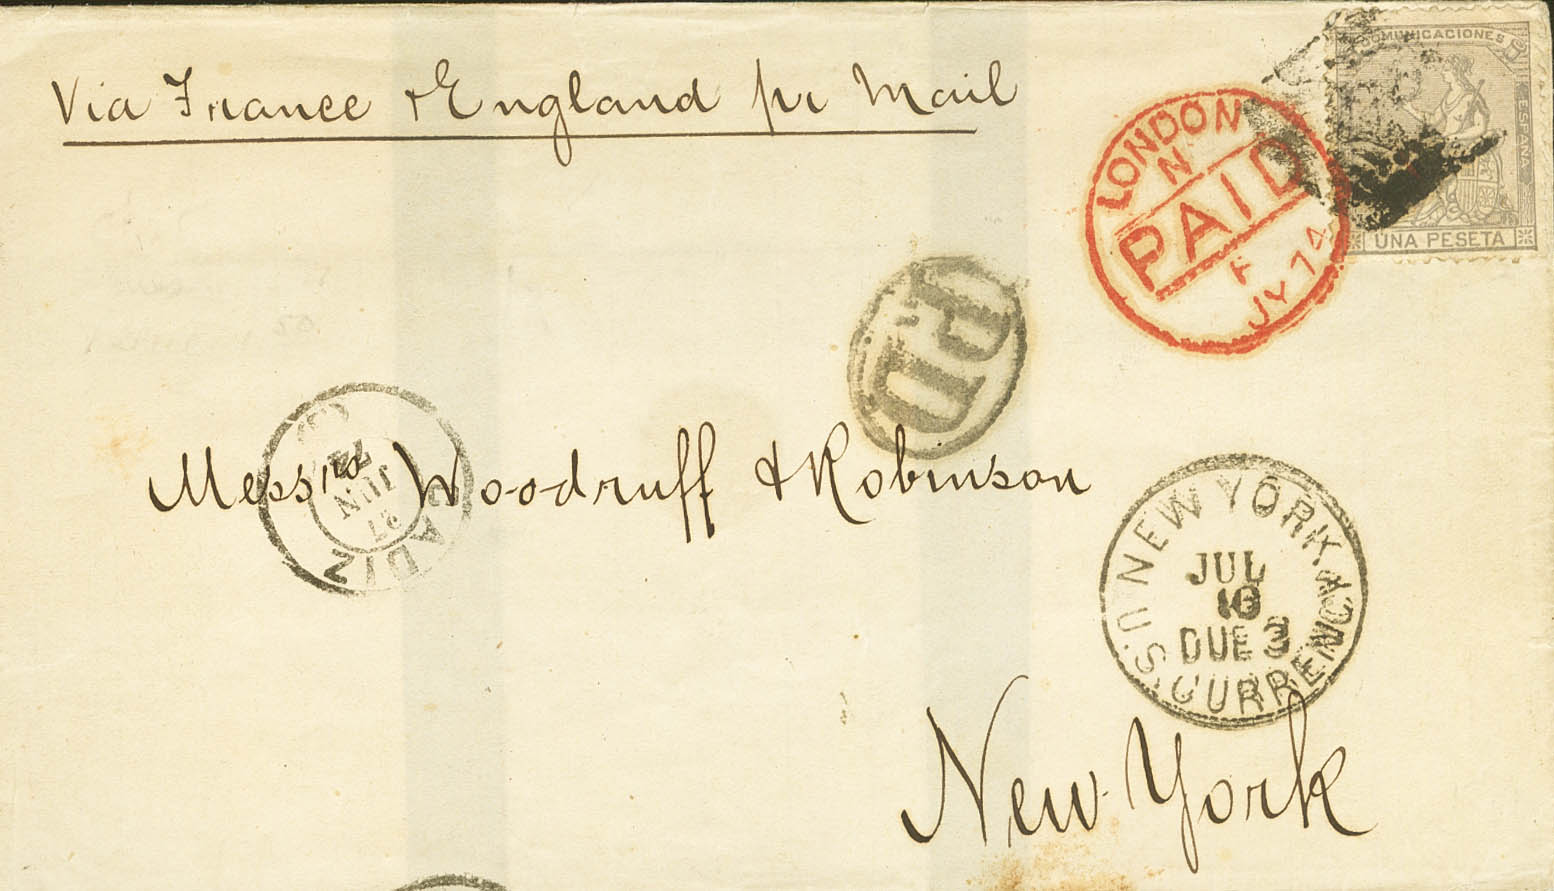 Via France & England pr Mail
COMUNICACIONES
ESPAÑA
UNA PESETA
LONDON
N
PAID
F
JY 74
PD
CADIZ
27
JUN
74
Messrs Woodruff & Robinson
NEW YORK.
JUL
16
DUE 3
U.S. CURRENCY
New York